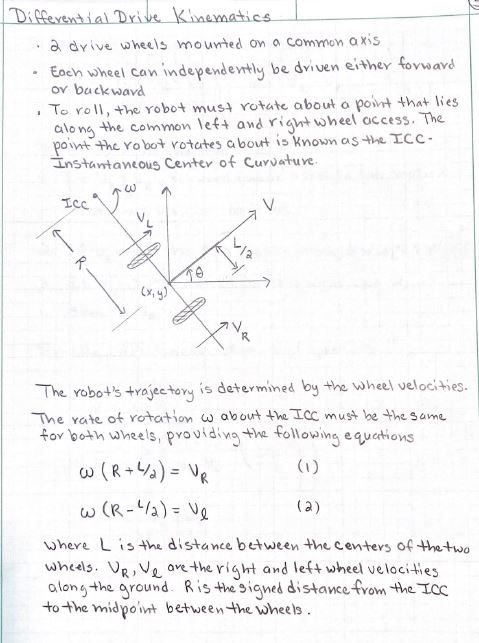 Differential Drive Kinematics
· 2 drive wheels mounted on a common axis
· Each wheel can independently be driven either forward
or backward
· To roll, the robot must rotate about a point that lies
along the common left and right wheel access. The
point the robot rotates about is known as the ICC -
Instantaneous Center of Curvature.
ICC
ω
V_L
V
L/2
θ
R
(x,y)
V_R
The robot's trajectory is determined by the wheel velocities.
The rate of rotation ω about the ICC must be the same
for both wheels, providing the following equations
ω (R + L/2) = V_R (1)
ω (R - L/2) = V_l (2)
where L is the distance between the centers of the two
wheels. V_R, V_l are the right and left wheel velocities
along the ground. R is the signed distance from the ICC
to the midpoint between the wheels.